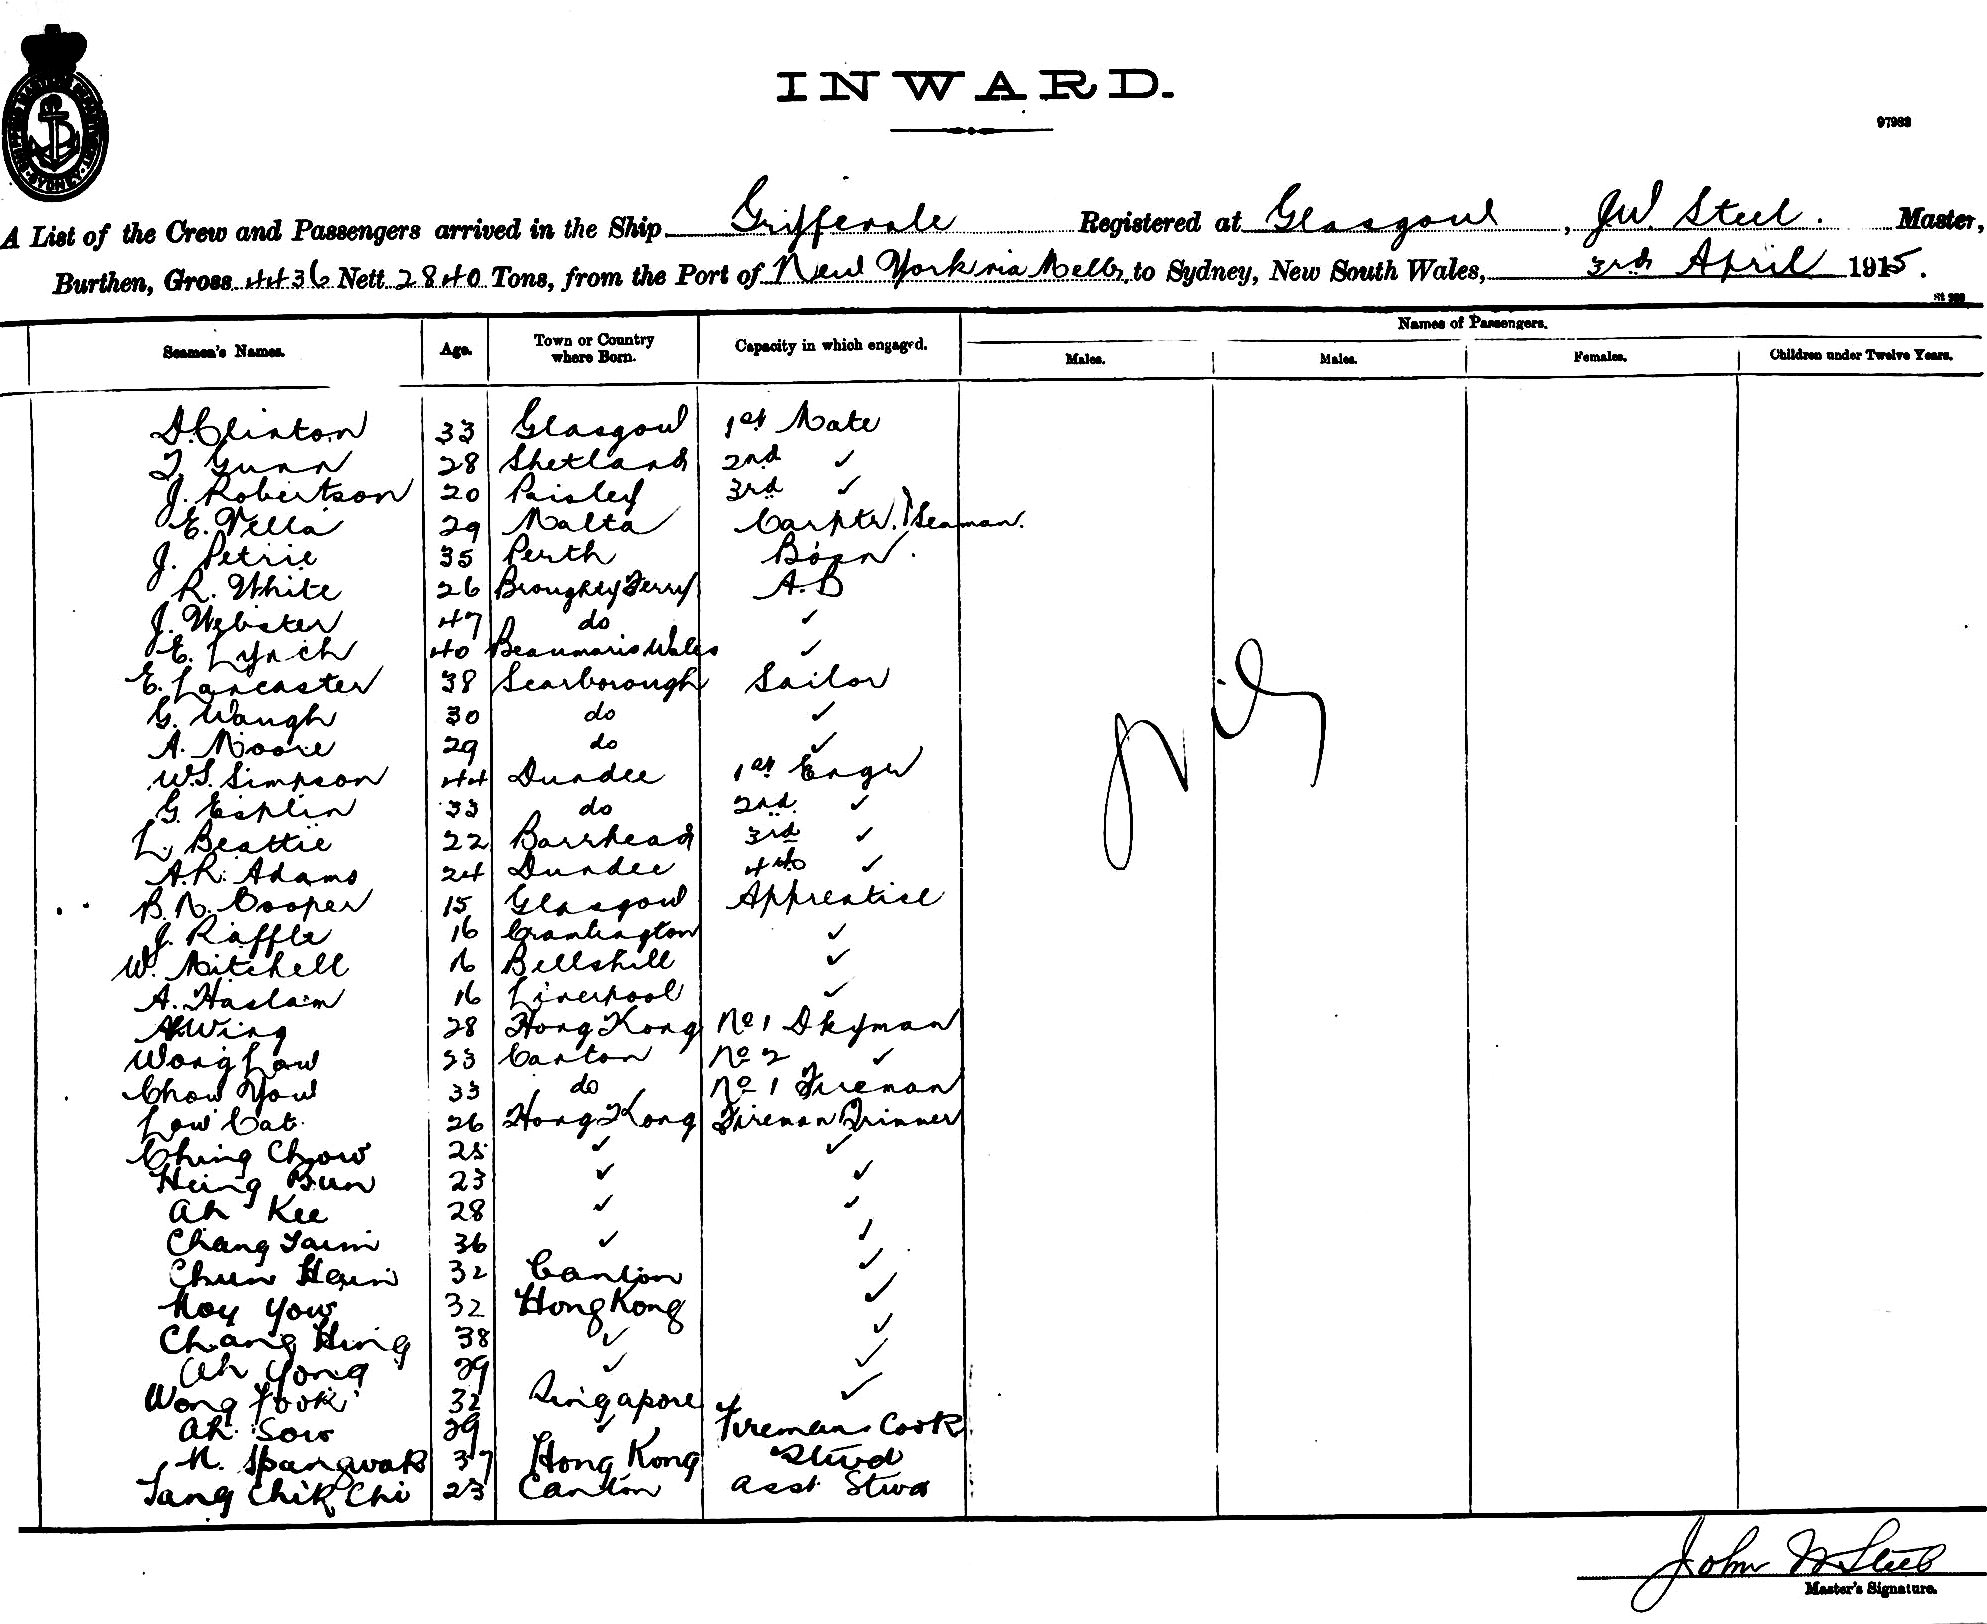 INWARD.
97983
A List of the Crew and Passengers arrived in the Ship Gryfevale Registered at Glasgow, J.W. Steel. Master,
Burthen, Gross 4436 Nett 2840 Tons, from the Port of New York via Melb. to Sydney, New South Wales, 3rd April 1915.
Seamen's Names. Age. Town or Country where Born. Capacity in which engaged. Names of Passengers.
Males. Males. Females. Children under Twelve Years.
D. Clinton 33 Glasgow 1st Mate
T. Gunn 28 Shetland 2nd ✓
J. Robertson 20 Paisley 3rd ✓
E. Vella 29 Malta Carptr. Seaman.
J. Petrie 35 Perth Bosn.
R. White 26 Broughty Ferry A.B
J. Webster 47 do ✓
E. Lynch 40 Beaumaris Wales ✓
E. Lancaster 38 Scarborough Sailor
G. Waugh 30 do ✓
A. Moore 29 do ✓
W.S. Simpson 44 Dundee 1st Engr
G. Esplin 33 do 2nd ✓
L. Beattie 22 Barrhead 3rd ✓
A.R. Adams 24 Dundee 4th ✓
B.N. Cooper 15 Glasgow Apprentice
J. Raffle 16 Cramlington ✓
W. Mitchell 16 Bellshill ✓
A. Haslam 16 Liverpool ✓
Ah Wing 28 Hong Kong No 1 Dkyman
Wong Low 23 Canton No 2 ✓
Chow You 33 do No 1 Fireman
Low Cat 26 Hong Kong Fireman Trimmer
Ching Chow 25 ✓ ✓
Heing Bun 23 ✓ ✓
Ah Kee 28 ✓ ✓
Chang 36 ✓ ✓
Chun 32 Canton ✓
Moy Yow 32 Hong Kong ✓
Chang Hing 38 ✓ ✓
Ah Yong 29 ✓ ✓
Wong Fook 32 Singapore ✓
Ah Sow 29 ✓ Firemans Cook
N. Spangwak 37 Hong Kong Stwd
Tang Chik Chi 23 Canton asst Stwd
Nil
John W Steel
Master's Signature.